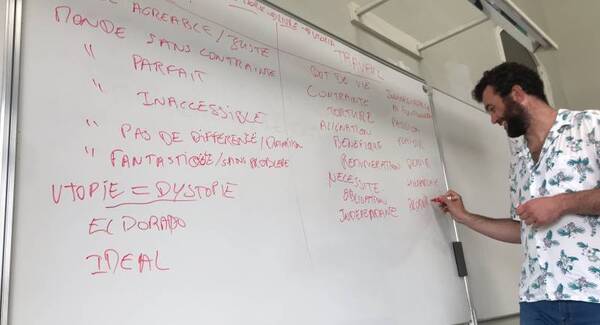 AGREABLE / JUSTE
MONDE SANS CONTRAINTE
" PARFAIT
" INACCESSIBLE
" PAS DE DIFFÉRENCE /
" FANTASTIQUE / SANS PROBLEME
UTOPIE = DYSTOPIE
EL DORADO
IDEAL
TRAVAIL
BUT DE VIE
CONTRAINTE
TORTURE PASSION
ALIENATION PLAISIR
BENEFIQUE
REMUNERATION DEVOIR
NECESSITE
OBLIGATION
INDEPENDANCE